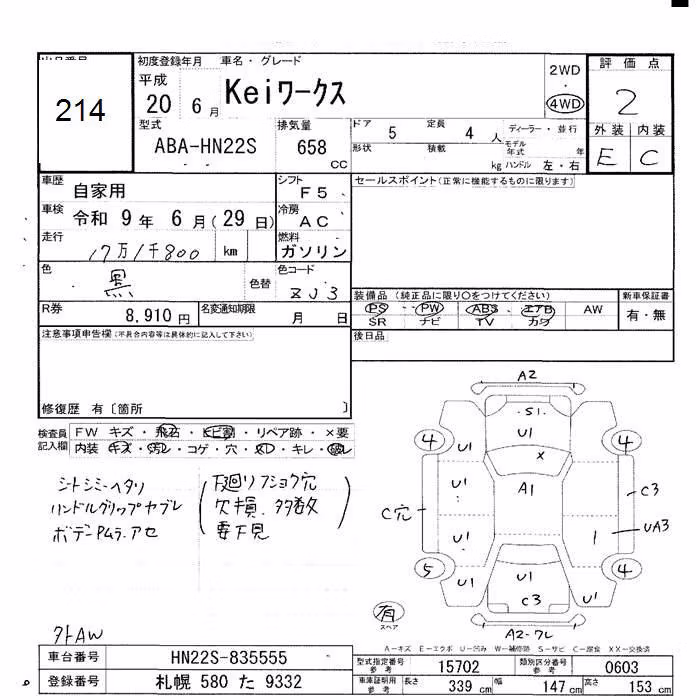 出品番号 初度登録年月 車名・グレード 評価点
214 平成 20 年 6 月 Keiワークス 2WD ・ 4WD 2
型式 ABA-HN22S 排気量 658 CC ドア 5 定員 4 人 ディーラー・並行 外装 内装
形状 積載 kg モデル年式 年 ハンドル 左・右 E C
車歴 自家用 シフト F5 セールスポイント(正常に機能するものに限ります)
車検 令和 9 年 6 月 ( 29 日) 冷房 AC
走行 17万1千800 km 燃料 ガソリン
色 黒 色替 色コード ZJ3
装備品 (純正品に限り○をつけてください) 新車保証書
R券 8,910 円 名変通知期限 月 日 PS PW ABS エアB AW 有・無
SR ナビ TV カワ
注意事項申告欄(不具合内容等は具体的に記入して下さい) 後日品
修復歴 有〔箇所 〕
検査員 FW キズ・飛石・ヒビ割・リペア跡・×要
記入欄 内装 キズ・汚レ・コゲ・穴・
シトシミーヘタリ
ハンドルグリップヤブレ
ボデーPムラ.アセ
(下廻リフショク穴
欠損.多数
要下見)
A2
S1
U1
4 U1 4
X
U1 A1 C3
C穴 UA3
U1 1
5 U1 U1 U1 4
C3
有 スペア
A2-ワレ
外AW
A-キズ E-エクボ U-凹み W-補修跡 S-サビ C-腐食 XX-交換済
車台番号 HN22S-835555 型式指定番号 参考 15702 類別区分番号 参考 0603
登録番号 札幌 580 た 9332 車庫証明用 参考 長さ 339 cm 幅 147 cm 高さ 153 cm